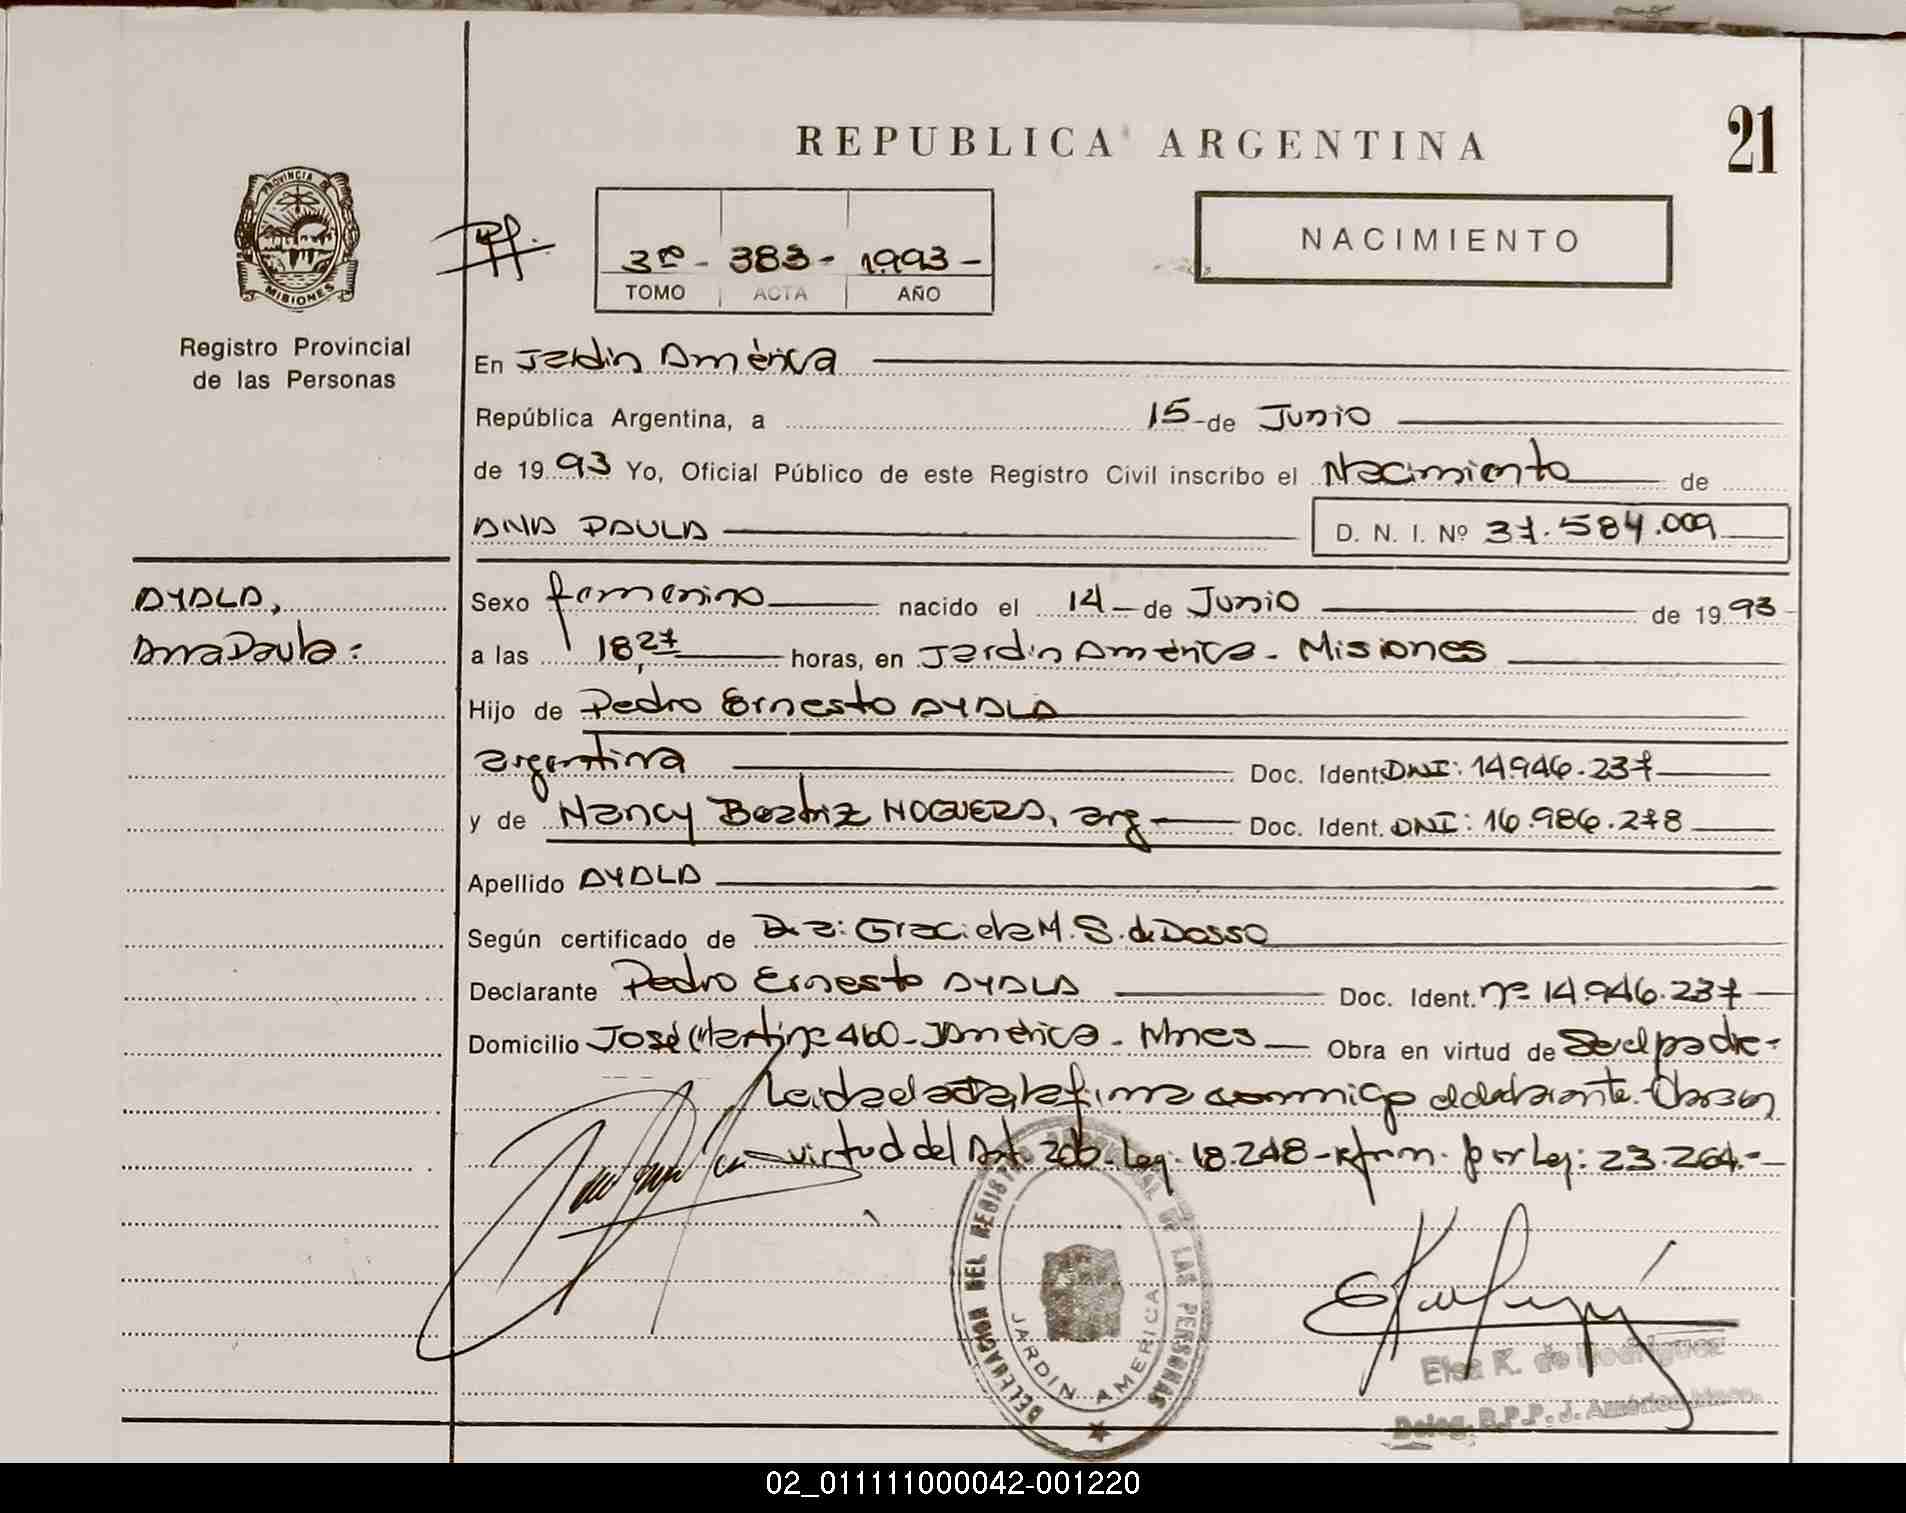 REPUBLICA ARGENTINA
21
PROVINCIA DE
MISIONES
Registro Provincial
de las Personas
3º - 383 - 1993 -
TOMO ACTA AÑO
NACIMIENTO
En Jardín América
República Argentina, a 15 - de Junio
de 19 93 Yo, Oficial Público de este Registro Civil inscribo el Nacimiento de
ANA PAULA D. N. I. Nº 37.584.009
AYALA,
Ana Paula:
Sexo femenino nacido el 14 - de Junio de 19 93
a las 18,27 horas, en Jardín América - Misiones
Hijo de Pedro Ernesto AYALA
argentina Doc. Ident. DNI: 14.946.237
y de Nancy Beatriz NOGUERA, arg - Doc. Ident. DNI: 16.986.278
Apellido AYALA
Según certificado de Dra: Graciela M. S. de Dosso
Declarante Pedro Ernesto AYALA Doc. Ident. nº 14.946.237
Domicilio José 460 - J América - Mnes Obra en virtud de Ser el padre -
Leida el acta, la firma conmigo el declarante. Obra en
virtud del Art. 2do. Ley: 18.248 - por Ley: 23.264.-
DELEGACION DEL REGISTRO PROVINCIAL DE LAS PERSONAS
JARDIN AMERICA
Elsa K. de Rodriguez
Deleg. R.P.P. J. América Mnes.
02_011111000042-001220